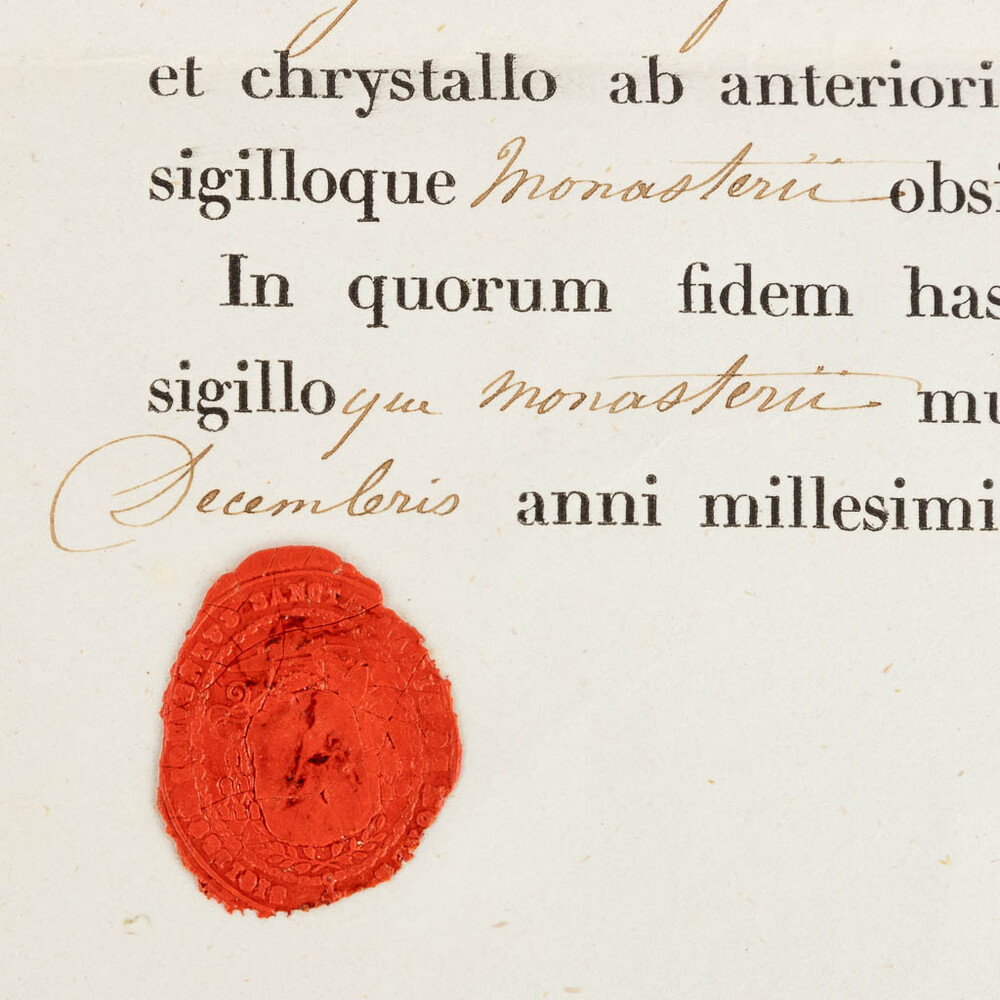 et chrystallo ab anteriori
sigilloque Monasterii obsi
In quorum fidem has
sigilloque monasterii mu
Decembris anni millesimi
CONVENTUS SANCT
SIGILL